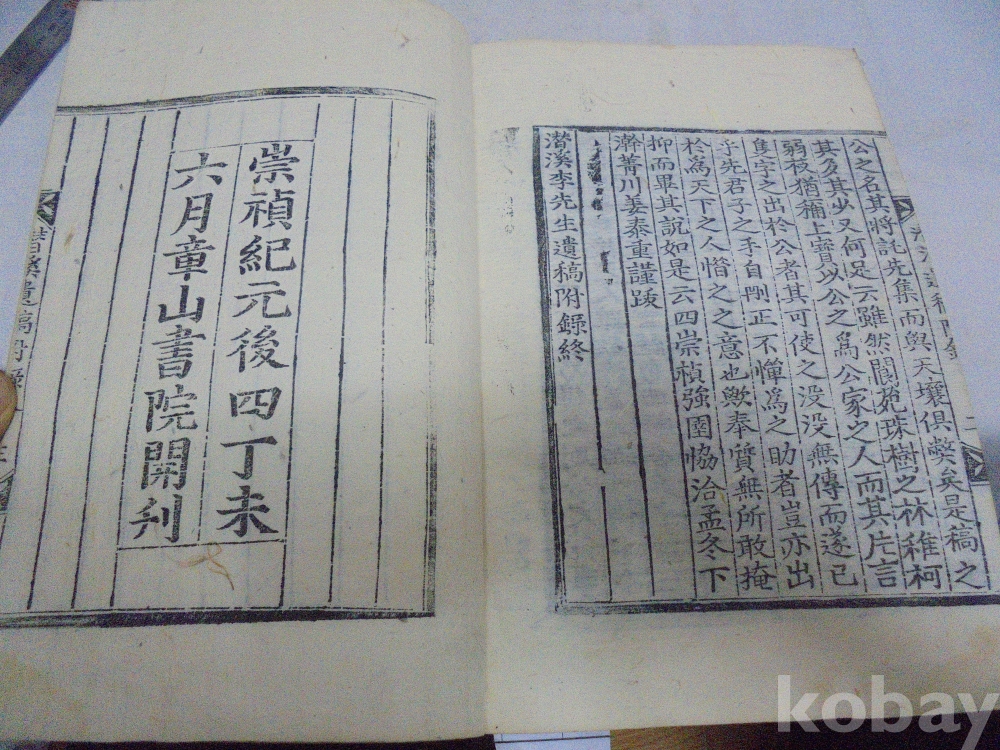 公之名其將託先集而與天壤俱弊矣是稿之
其多其少又何足云雖然閬苑珠樹之林稚柯
弱枝猶稱上寶以公之爲公家之人而其片言
隻字之出於公者其可使之没没無傳而遂已
乎先君子之手自刪正不憚爲之助者豈亦出
於爲天下之人惜之之意也歟奉質無所敢掩
抑而畢其說如是云四崇禎強圉恊洽孟冬下
澣菁川姜泰重謹跋
潛溪李先生遺稿附錄終
崇禎紀元後四丁未
六月章山書院開刋
kobay